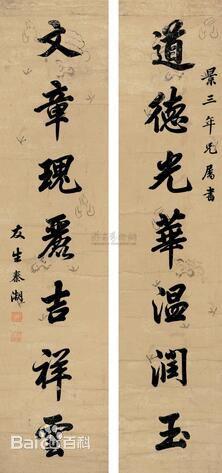 景三年兄属书
道德光華温潤玉
文章瑰麗吉祥雲
友生秦潮
Baidu百科